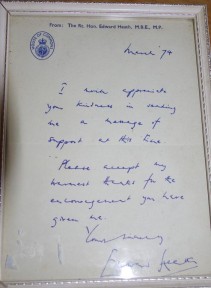 From: The Rt. Hon. Edward Heath, M.B.E., M.P.
HOUSE OF COMMONS
March '74
I much appreciate
your kindness in sending
me a message of
support at this time
Please accept my
warmest thanks for the
encouragement you have
given me.
Yours sincerely
Edward Heath